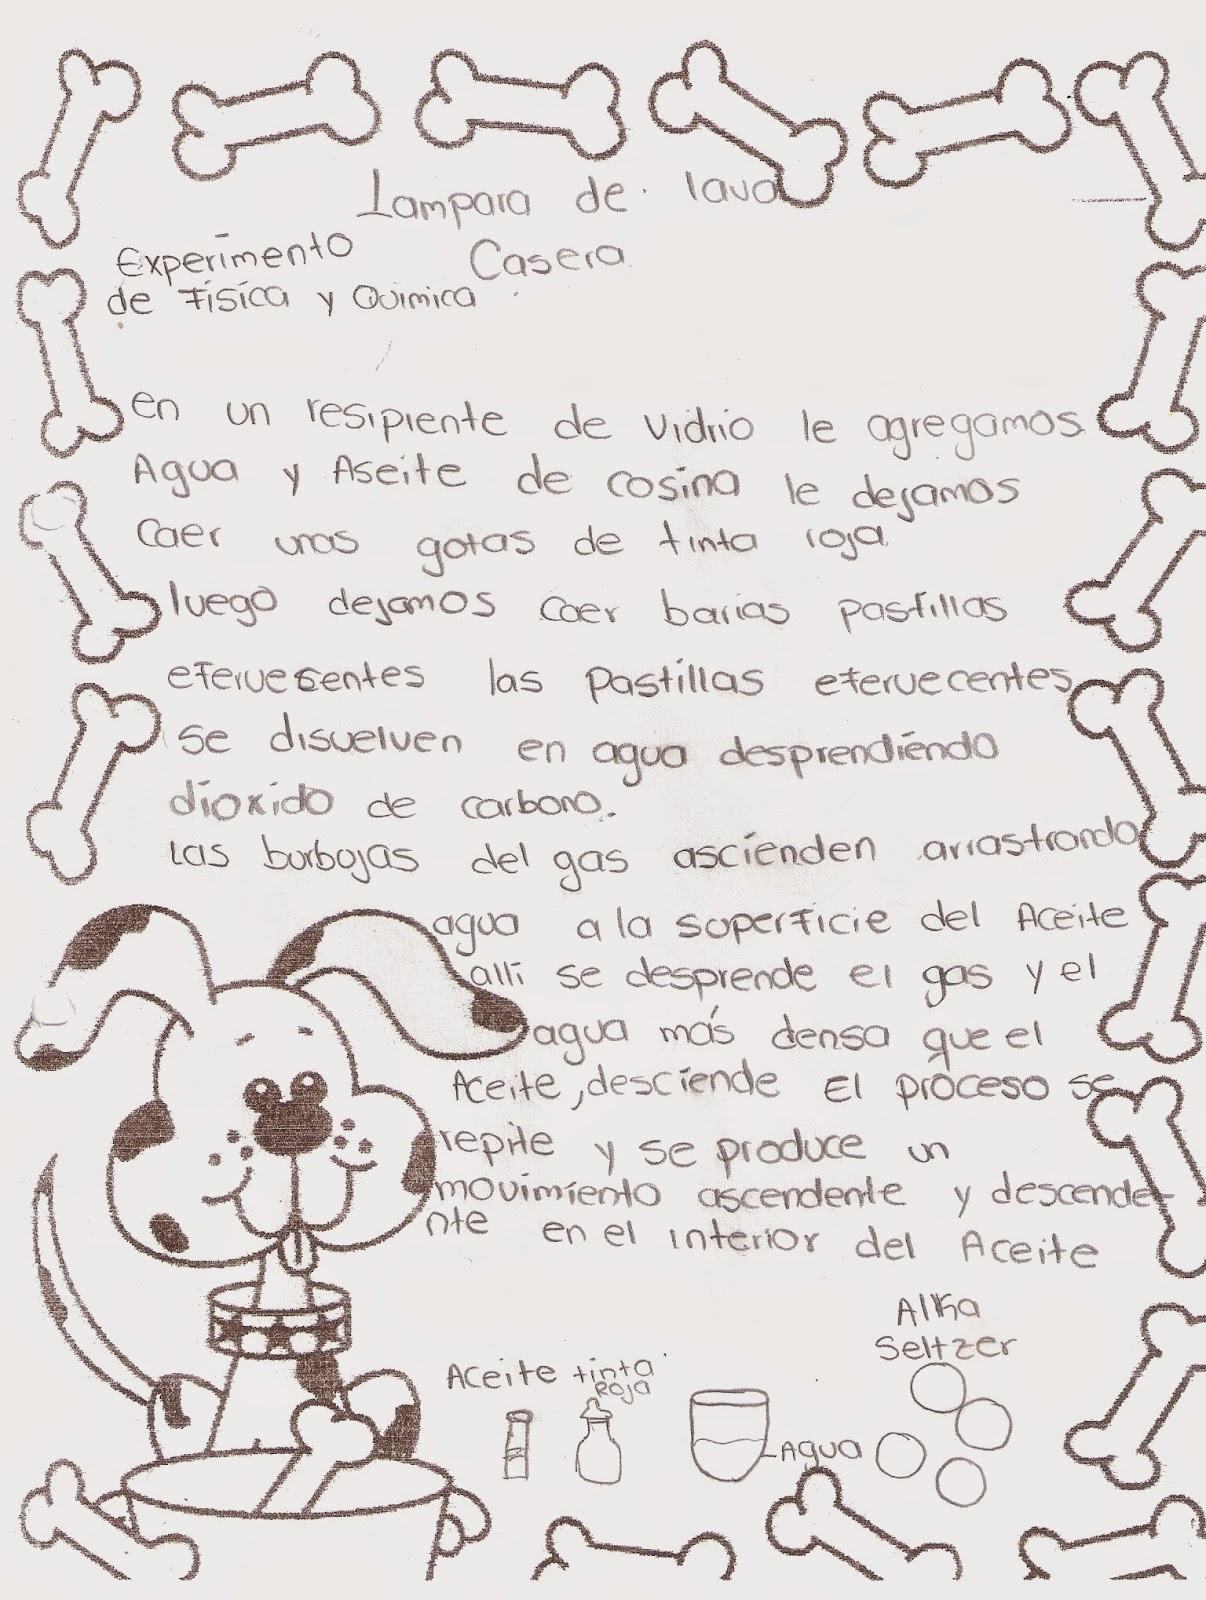 Lampara de lava
Casera
Experimento
de Fisica y Quimica
en un resipiente de vidrio le agregamos
Agua y Aseite de cosina le dejamos
Caer unas gotas de tinta roja
luego dejamos caer barias pastillas
efervesentes las pastillas efervecentes
se disuelven en agua desprendiendo
dioxido de carbono.
Las burbojas del gas ascienden arrastrando
agua a la superficie del Aceite
alli se desprende el gas y el
agua más densa que el
Aceite, desciende El proceso se
repite y se produce un
movimiento ascendente y descende-
nte en el interior del Aceite
Alka
Seltzer
Aceite tinta
Roja
Agua